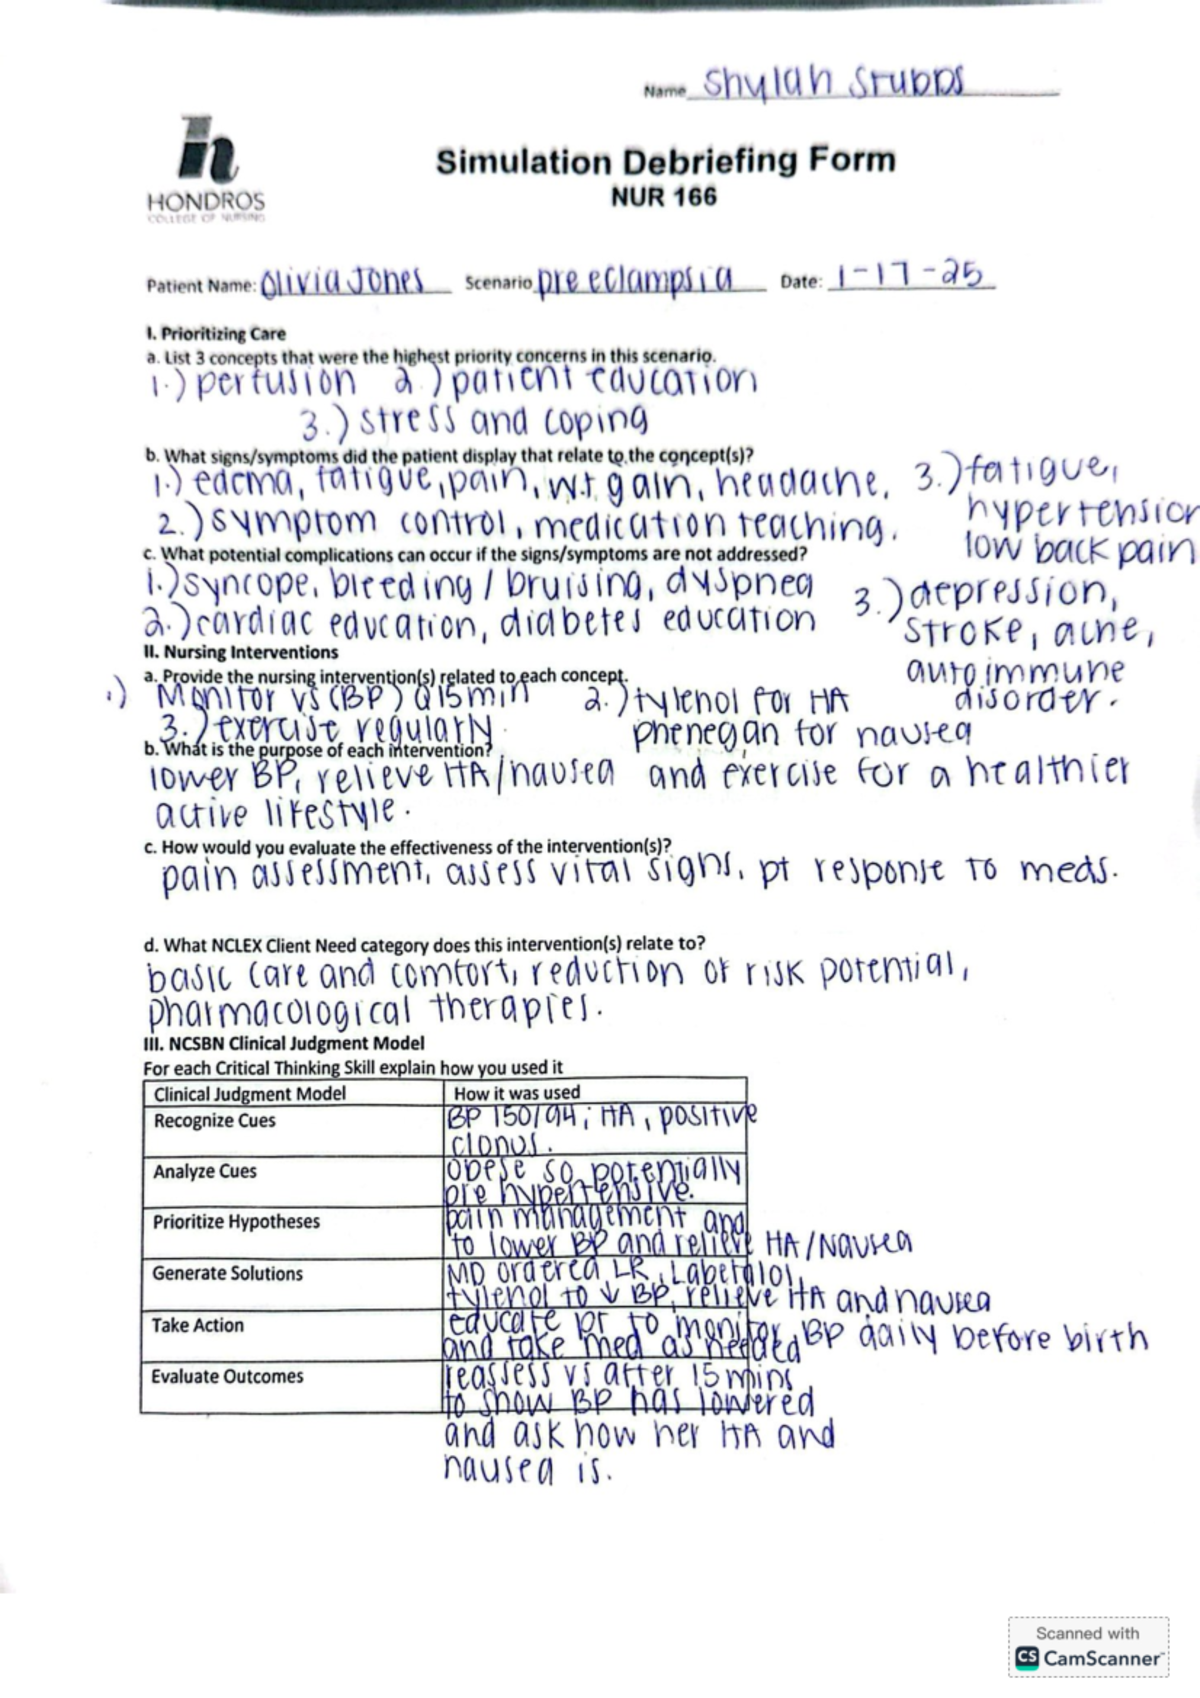 Name Shylah Stubbs
HONDROS
COLLEGE OF NURSING
Simulation Debriefing Form
NUR 166
Patient Name: Olivia Jones Scenario pre eclampsia Date: 1-17-25
I. Prioritizing Care
a. List 3 concepts that were the highest priority concerns in this scenario.
1.) perfusion 2.) patient education
3.) stress and coping
b. What signs/symptoms did the patient display that relate to the concept(s)?
1.) edema, fatigue, pain, w.t gain, headache.
2.) symptom control, medication teaching.
3.) fatigue,
hypertension
low back pain
c. What potential complications can occur if the signs/symptoms are not addressed?
1.) syncope, bleeding / bruising, dyspnea
2.) cardiac education, diabetes education
3.) depression,
stroke, acne,
autoimmune
disorder.
II. Nursing Interventions
a. Provide the nursing intervention(s) related to each concept.
1) Monitor vs (BP) Q15min 2.) tylenol for HA
3.) exercise regularly. phenegan for nausea
b. What is the purpose of each intervention?
lower BP, relieve HA/nausea and exercise for a healthier
active lifestyle.
c. How would you evaluate the effectiveness of the intervention(s)?
pain assessment, assess vital signs, pt response to meds.
d. What NCLEX Client Need category does this intervention(s) relate to?
basic care and comfort, reduction of risk potential,
pharmacological therapies.
III. NCSBN Clinical Judgment Model
For each Critical Thinking Skill explain how you used it
Clinical Judgment Model How it was used
Recognize Cues BP 150/94; HA, positive
clonus.
Analyze Cues obese so potentially
pre hypertensive.
Prioritize Hypotheses pain management and
to lower BP and relieve HA/Nausea
Generate Solutions MD ordered LR, Labetalol,
tylenol to ↓ BP, relieve HA and nausea
Take Action educate pt to monitor BP daily before birth
and take med as needed
Evaluate Outcomes reassess vs after 15 mins
to show BP has lowered
and ask how her HA and
nausea is.
Scanned with
CS CamScanner